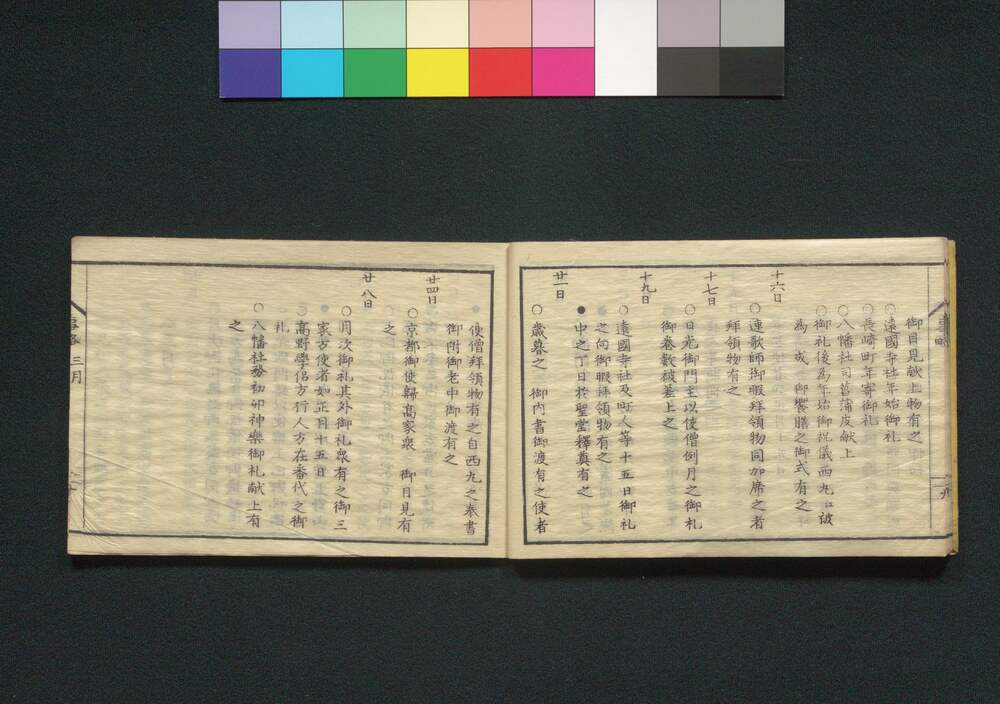 御目見献上物有之
○遠國寺社年始御礼
○長崎町年寄御礼
○八幡社司菖蒲皮献上
○御礼後為年始御祝儀西丸江被
為 成 御饗膳之御式有之
十六日
○連歌師御暇拜領物同加席之者
拜領物有之
十七日
○日光御門主以使僧例月之御札
御巻数被差上之
十九日
○遠國寺社及町人等十五日御礼
之向御暇拜領物有之
●中之丁日於聖堂釋奠有之
廿一日
○歳暮之 御内書御渡有之使者
●使僧拜領物有之自西丸之奉書
御附御老中御渡有之
廿四日
○京都御使歸高家衆 御目見有
之
廿八日
○月次御礼其外御礼衆有之御三
●家方使者如正月十五日
○高野學侶方行人方在番代之御
礼
○八幡社務初卯神樂御札献上有
之
三月